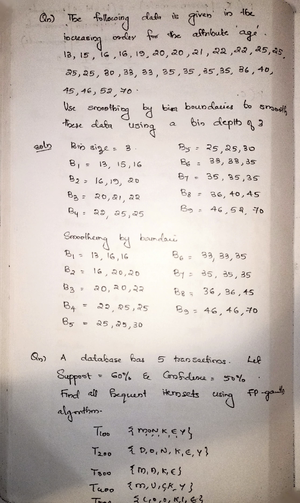 Qn) The following data is given in the
increasing order for the attribute age.
13, 15, 16, 16, 19, 20, 20, 21, 22, 22, 25, 25,
25, 25, 30, 33, 33, 35, 35, 35, 35, 36, 40,
45, 46, 52, 70.
Use smoothing by bin boundaries to smooth
these data using a bin depth of 3
Soln Bin size = 3
B1 = 13, 15, 16
B2 = 16, 19, 20
B3 = 20, 21, 22
B4 = 22, 25, 25
B5 = 25, 25, 30
B6 = 33, 33, 35
B7 = 35, 35, 35
B8 = 36, 40, 45
B9 = 46, 52, 70
Smoothing by
B1 = 13, 16, 16
B2 = 16, 20, 20
B3 = 20, 20, 22
B4 = 22, 25, 25
B5 = 25, 25, 30
B6 = 33, 33, 35
B7 = 35, 35, 35
B8 = 36, 36, 45
B9 = 46, 46, 70
Qn) A database has 5 transactions. Let
Support = 60% & Confidence = 50%
Find all frequent itemsets using
algorithm.
T100 {M,O,N,K,E,Y}
T200 {D,O,N,K,E,Y}
T300 {M,A,K,E}
T400 {M,U,C,K,Y}